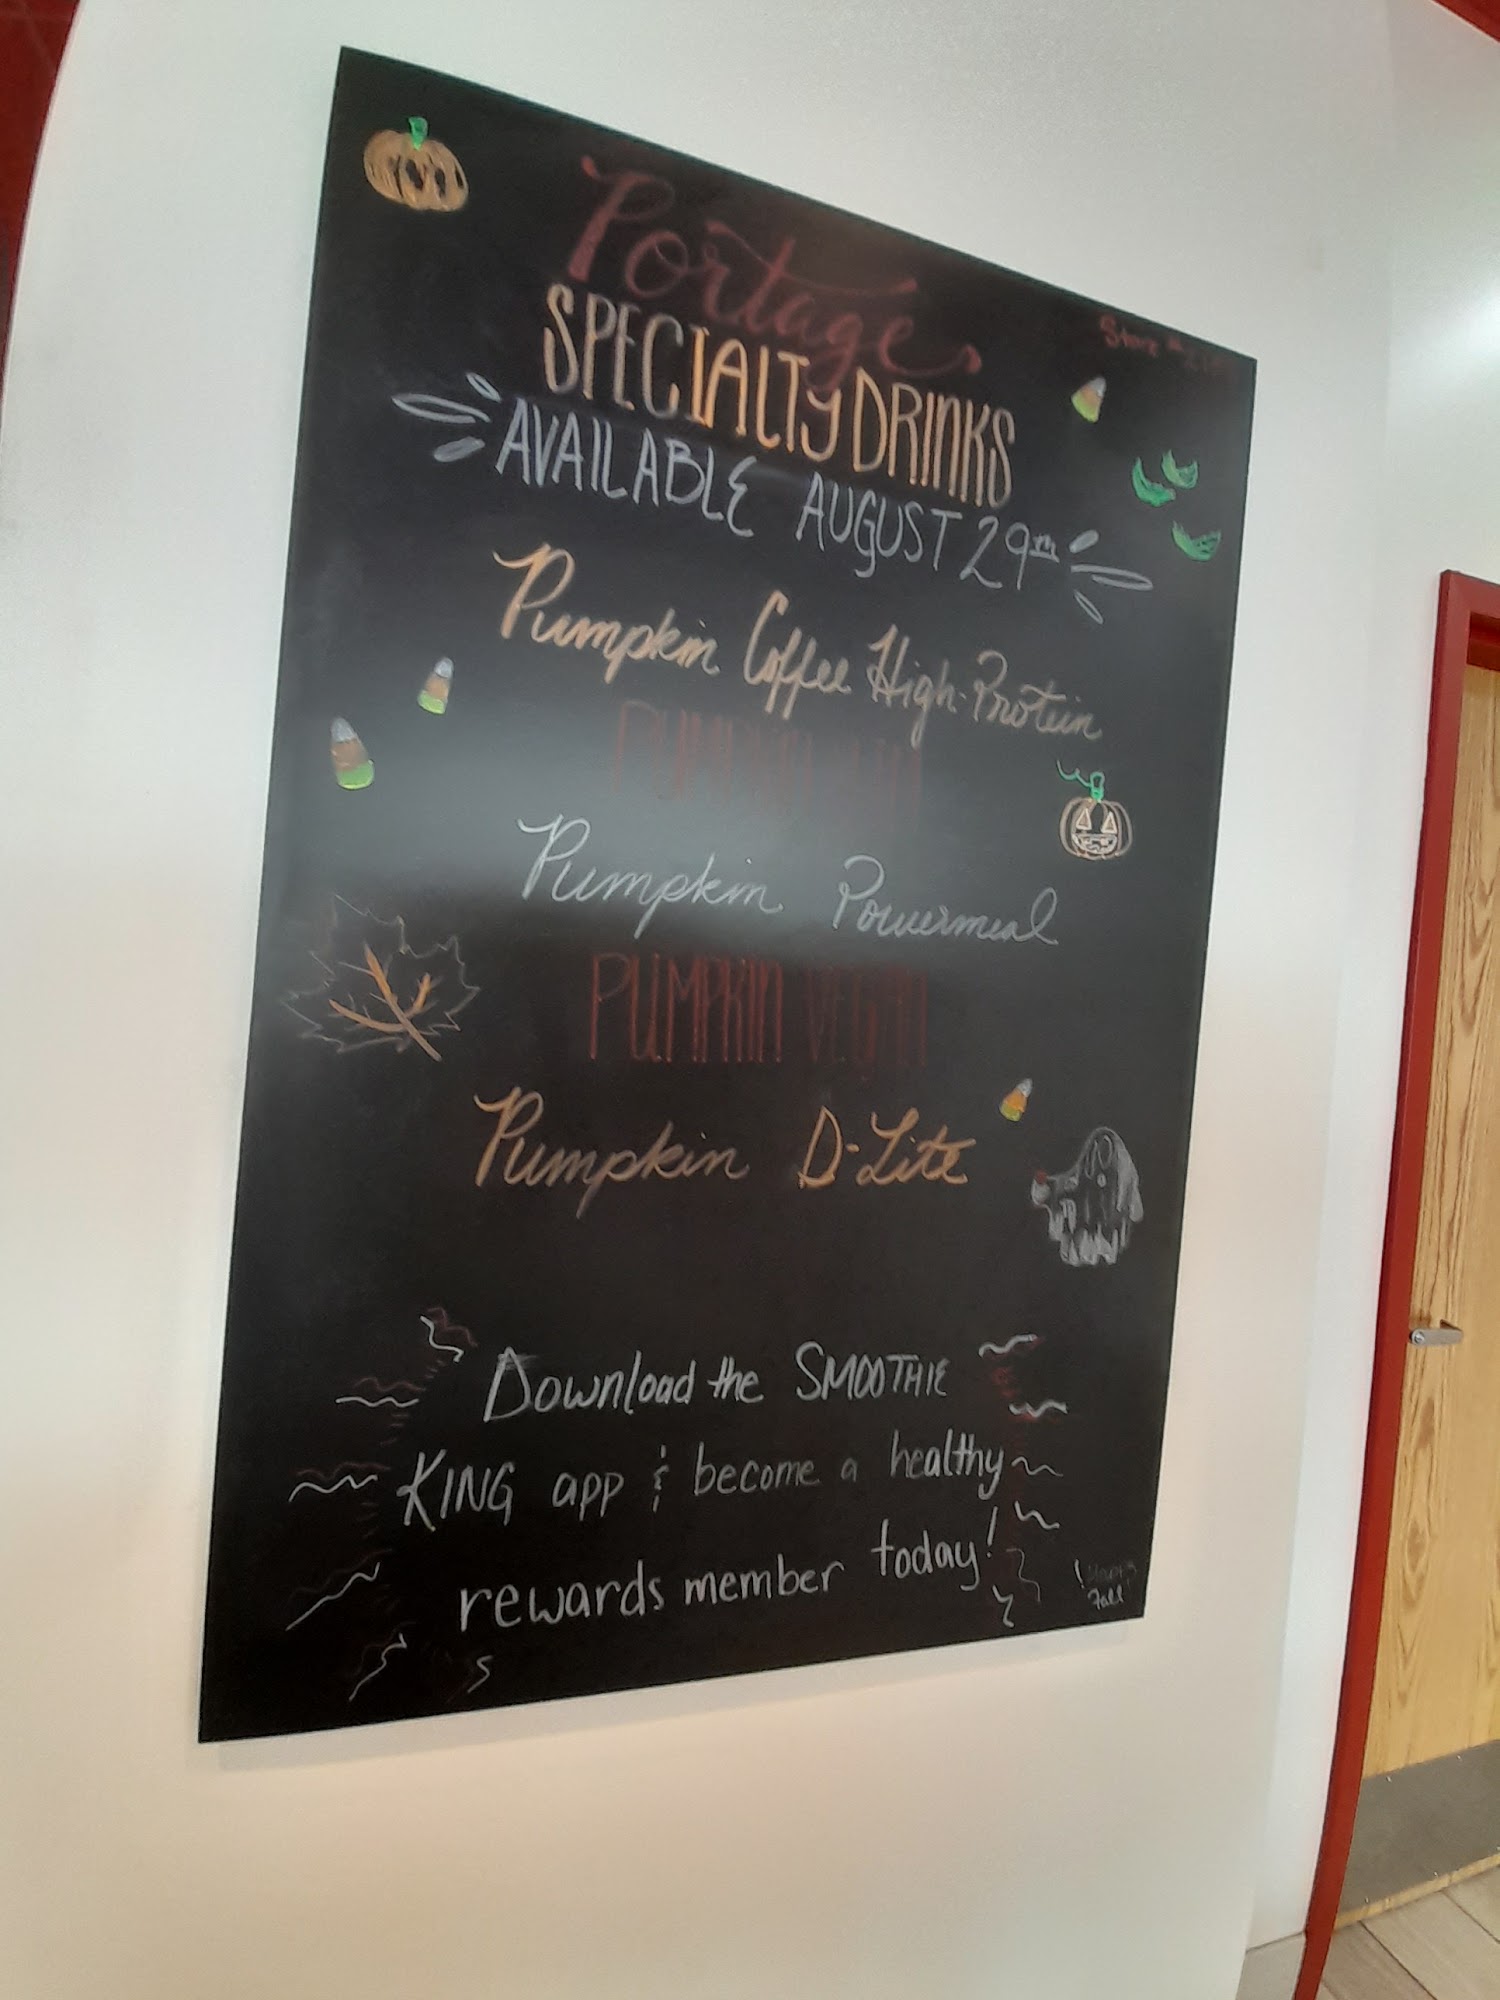 Portage
Store #
SPECIALTY DRINKS
AVAILABLE AUGUST 29TH
Pumpkin Coffee High-Protein
PUMPKIN
Pumpkin Powermeal
PUMPKIN VEGAN
Pumpkin D-Lite
Download the SMOOTHIE
KING app & become a healthy
rewards member today!
Fall